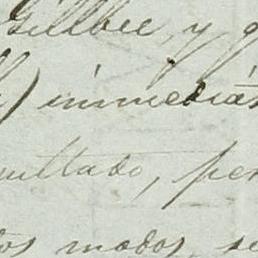 Gillbee, y q
) inmediat
sultado, per
los modos, se